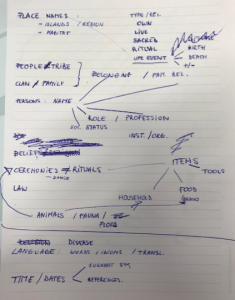 PLACE NAMES:
- ISLANDS / REGION
- HABITAT
TYPE/REL.
OWN
LIVE
SACRED
RITUAL
LIFE EVENT
BIRTH
DEATH
+/-
PEOPLE/TRIBE
CLAN / FAMILY
BELONGING / FAM. REL.
PERSONS: NAME
ROLE / PROFESSION
SOC. STATUS
INST./ORG.
BELIEF
CEREMONIES / RITUALS
- DANCE
ITEMS
TOOLS
LAW
FOOD
HOUSEHOLD
ANIMALS / FAUNA /
FLORA
DISEASE
LANGUAGE: WORDS / IDIOMS / TRANSL.
TIME / DATES
REFERENCES.